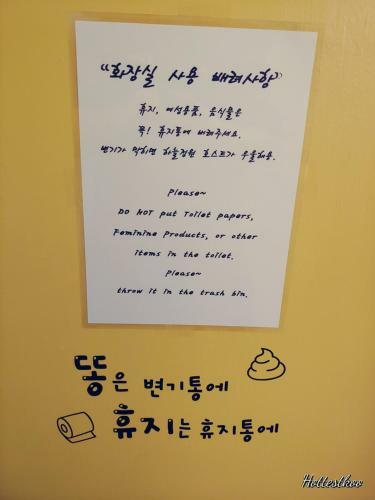 "화장실 사용 배려사항"
휴지, 여성용품, 음식물은
꼭! 휴지통에 버려주세요.
변기가 막히면 하늘정원 호스트가 우울해용.
Please~
DO NOT put Toilet papers,
Feminine Products, or other
items in the toilet.
Please~
throw it in the trash bin.
똥은 변기통에
휴지는 휴지통에